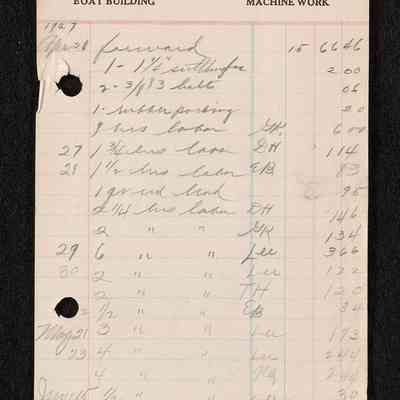 BOAT BUILDING MACHINE WORK
1927
Apr 26 forward 15 66 46
1 - 1 1/2" 2 00
2 - 3/8 x 3 bolts 06
1 - rubber packing 20
8 hrs labor GK 6 00
27 1 3/4 hrs labor DH 1 14
28 1 1/2 hrs labor EB 83
1 red lead 95
2 1/4 hrs labor DH 1 46
2 " " GK 1 34
29 6 " " Lee 3 66
30 2 " " Lee 1 22
2 " " TH 1 20
2 1/2 " " EB 84
May 21 3 " " Lee 1 93
23 4 " " Lee 2 44
4 " " 2 44
June 15 1/2 " " 30